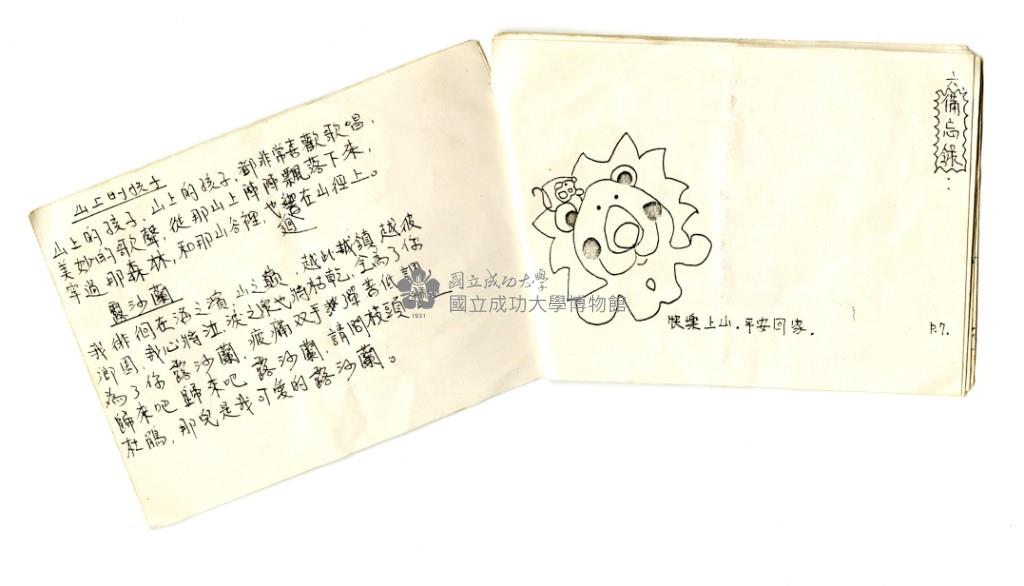 山上的孩子
山上的孩子,山上的孩子,都非常喜歡歌唱,
美妙的歌聲,從那山上陣陣飄落下來,
穿過那森林,和那山谷裡,也響在山徑上。
迴
露沙蘭
我徘徊在海之濱,山之巔,越此城鎮越彼
鄉困,我心將泣,淚之泉也將枯乾,全為了你
為了你露沙蘭,疲痛双手舞彈著低調
歸來吧歸來吧露沙蘭,請問枝頭
杜鵑,那兒是我可愛的露沙蘭。
六備忘錄:
快樂上山.平安回家.
P.7.
國立成功大學
國立成功大學博物館
1931